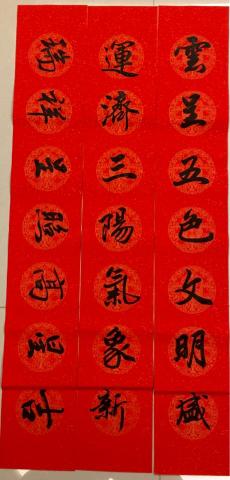 雲呈五色文明盛
運濟三陽氣象新
吉星高照呈祥瑞